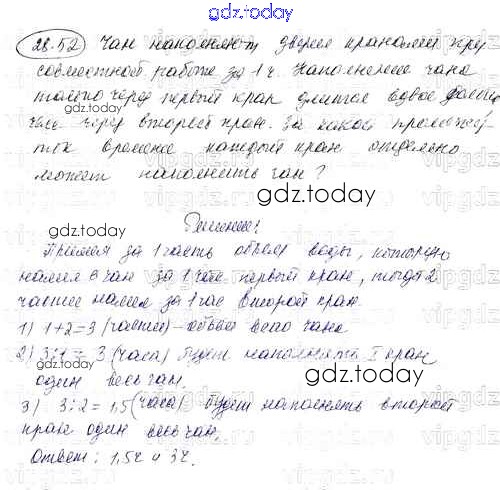 gdz.today
28.52 Чан наполняют двумя кранами при
gdz.today
совместной работе за 1 ч. Наполнение чана
только через первый кран длится вдвое дольше
чем через второй кран. За какой промежу-
ток времени каждый кран отдельно
может наполнить чан?
gdz.today
Решение:
gdz.today
Примем за 1 часть объем воды, которую
налил в чан за 1 час первый кран, тогда 2
части налил за 1 час второй кран
1) 1+2=3 (части) – объем всего чана
2) 3:1 = 3 (часа) будет наполнять I кран
один весь чан.
3) 3:2 = 1,5 (часа) будет наполнять второй
кран один весь чан.
Ответ: 1,5ч и 3ч.
gdz.today